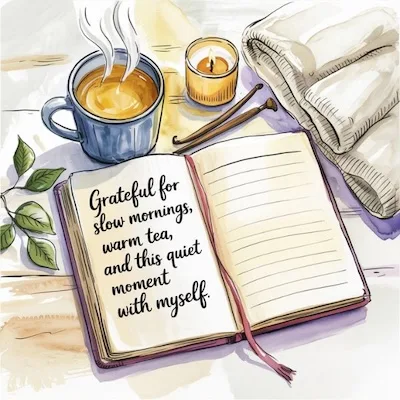 Grateful for
slow mornings,
warm tea,
and this quiet
moment
with myself.